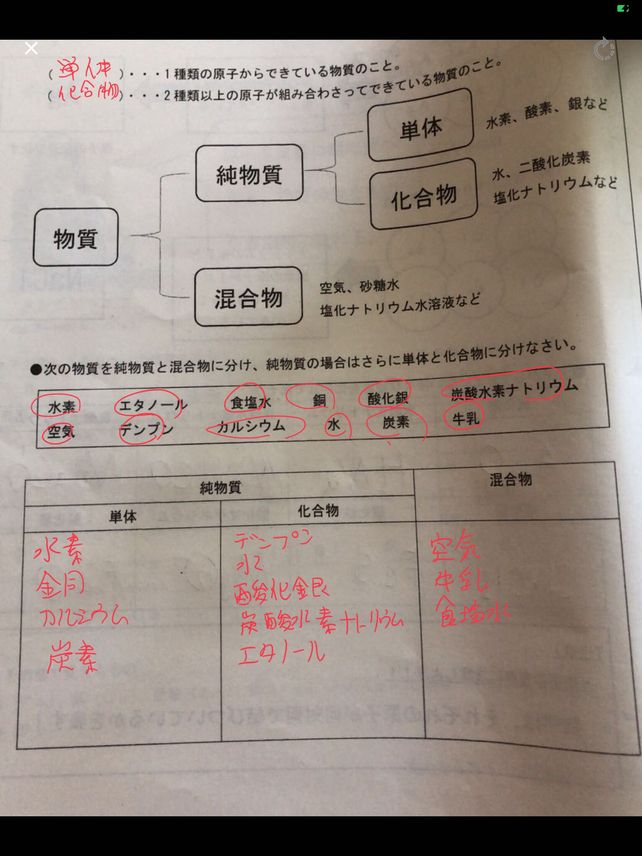 (単体)・・・1種類の原子からできている物質のこと。
(化合物)・・・2種類以上の原子が組み合わさってできている物質のこと。
物質
純物質
単体
水素、酸素、銀など
化合物
水、二酸化炭素
塩化ナトリウムなど
混合物
空気、砂糖水
塩化ナトリウム水溶液など
●次の物質を純物質と混合物に分け、純物質の場合はさらに単体と化合物に分けなさい。
水素 エタノール 食塩水 銅 酸化銀 炭酸水素ナトリウム
空気 デンプン カルシウム 水 炭素 牛乳
純物質 混合物
単体 化合物
水素 デンプン 空気
銅 水 牛乳
カルシウム 酸化銀 食塩水
炭酸水素ナトリウム
炭素 エタノール